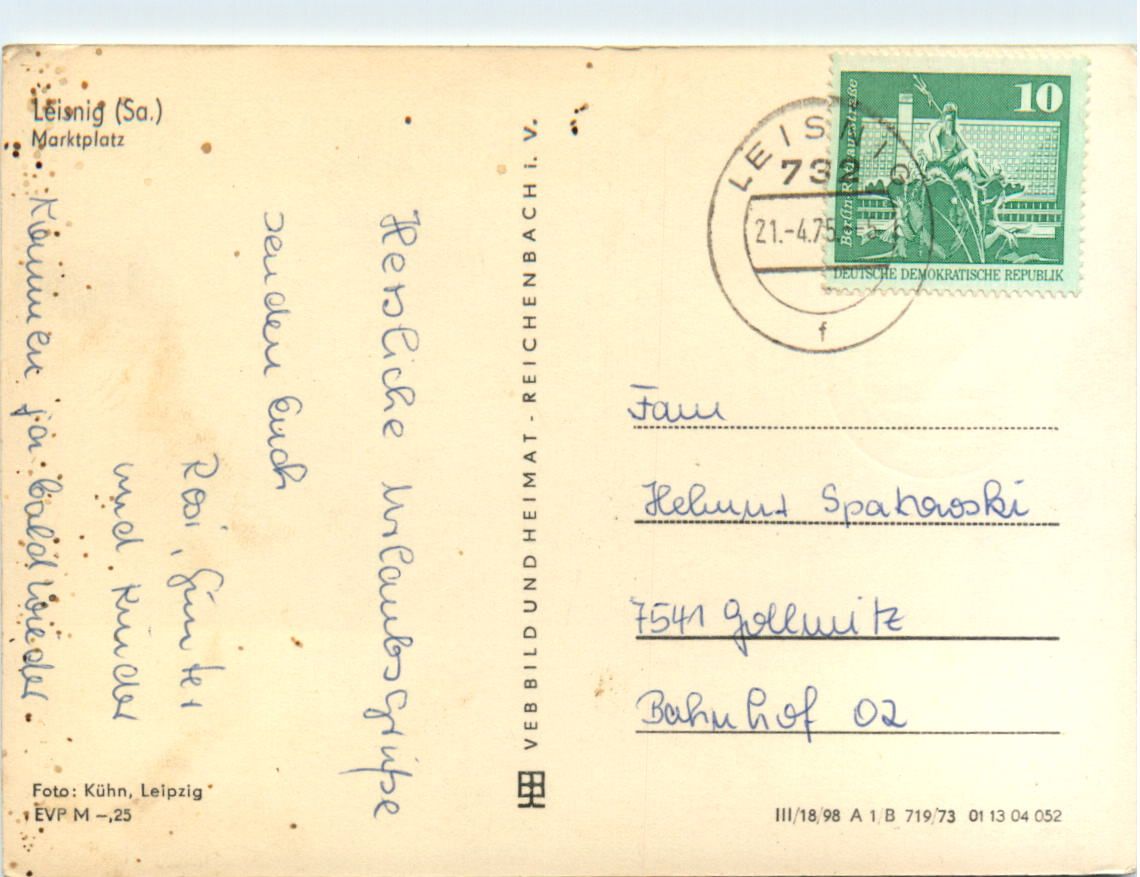 Leisnig (Sa.)
Marktplatz
Herzliche Urlaubsgrüße
senden Euch
Rosi, Günter
und Kinder
Kommen ja bald wieder
Foto: Kühn, Leipzig
EVP M –,25
VEB BILD UND HEIMAT - REICHENBACH i. V.
10
Berlin-Rathausstraße
DEUTSCHE DEMOKRATISCHE REPUBLIK
LEISNIG
732
21.-4.75
f
Fam
Helmut Spakowski
7541 Gollmitz
Bahnhof 02
III/18/98 A 1/B 719/73 01 13 04 052